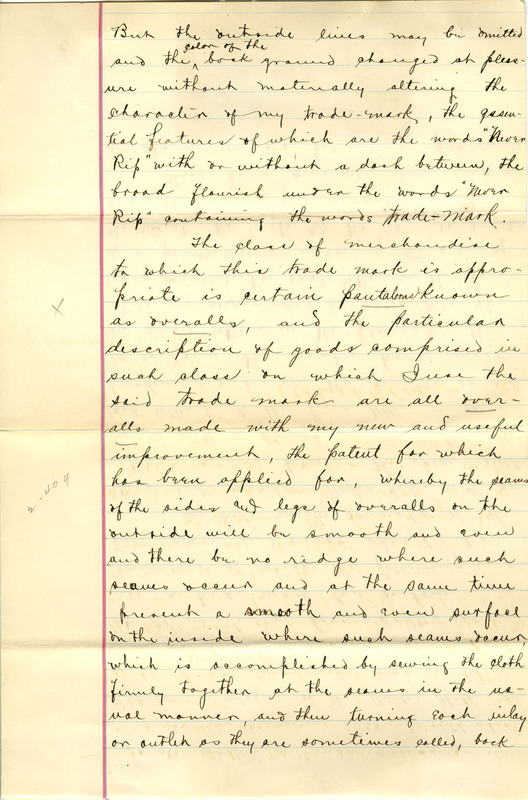 But the outside lines may be omitted
color of the
and the back ground changed at pleas-
ure without materially altering the
character of my trade-mark, the essen-
tial features of which are the words "Never
Rip" with or without a dash between, the
broad flourish under the words "Never
Rip" containing the words trade-mark.
The class of merchandise
to which this trade mark is appro-
priate is certain pantaloons known
as overalls, and the particular
description of goods comprised in
such class on which I use the
said trade mark are all over-
alls made with my new and useful
improvement, the patent for which
has been applied for, whereby the seams
of the sides and legs of overalls on the
outside will be smooth and even
and there be no ridge where such
seams occur and at the same time
present a smooth and even surface
on the inside where such seams occur,
which is accomplished by sewing the cloth
firmly together at the seams in the us-
ual manner, and then turning each inlay
or outlet as they are sometimes called, back
x
2-404